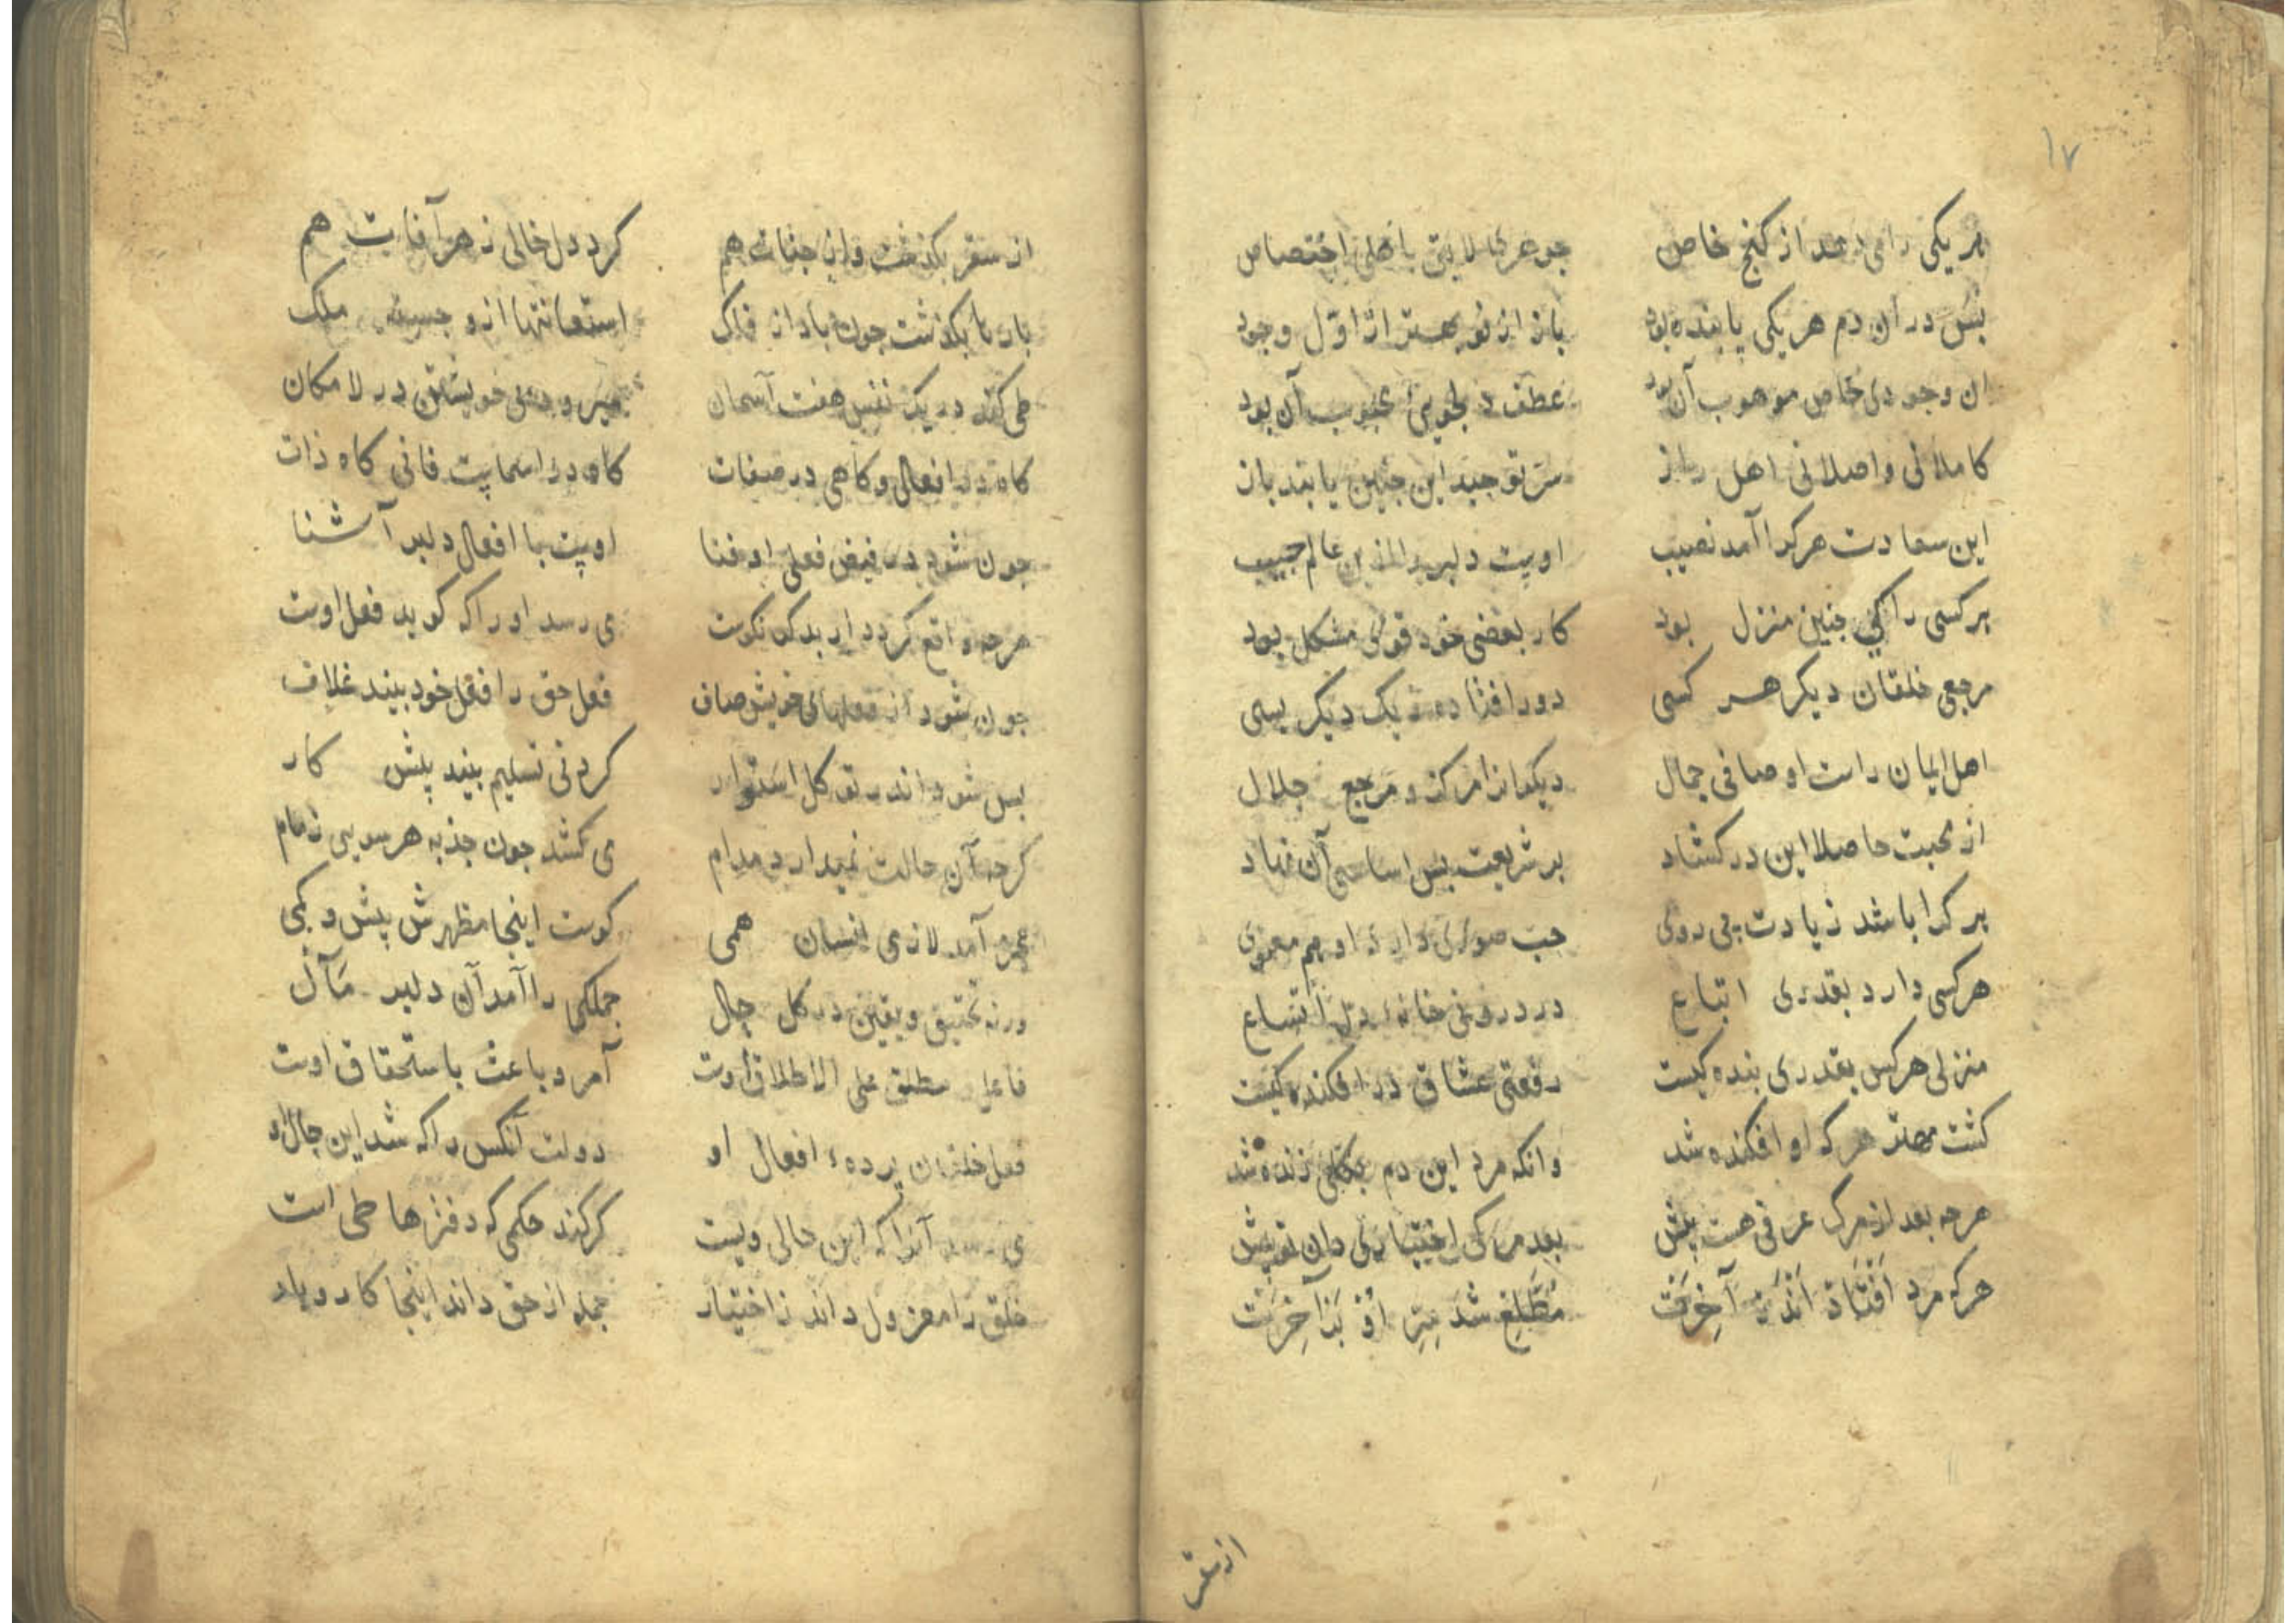 ۱۷
هر یکی را می‌دهد از کنج خاص جوهری لایق باهل اختصاص
پس در آن دم هر یکی پاینده بود باز از نو بهتر از اول وجود
ان وجودی خاص موهوب آن بود عطف دلجویی محبوب آن بود
کاملانی واصلانی اهل راز سر توحید این جنین یابند باز
این سعادت هرکرا آمد نصیب اوست دلبر را عالم حبیب
هر کسی را کی جنین منزل بود کار بعضی خود قوی مشکل بود
مرجعی خلقان دیکر هر کسی دور افتاده ز یک دیکر بسی
اهل ایمان راست اوصافی جمال دیکران را مرکز و مرجع جلال
از محبت حاصلا این در کشاد بر شریعت پس اساسی آن نهاد
هر کرا باشد زیادت پی روی حب صوری دارد او هم معنوی
هر کسی دارد بقدری اتباع در درونی خانهٔ دل اتساع
منزلی هر کس بقدری بنده کیست رفعتی عشاق در افکنده کیست
کشت مهتر هر که او افکنده شد وانکه مرد این دم بکلی زنده شد
هرجه بعد از مرک عرفی هست پیش بعد مرکی اختیاری دان تو پیش
هرکه مرد اَفتَاد اَندَر آخِرَت مُطَّلِع شد بر آخِرَت
از سقر
از سقر بکذشت واز جنات هم کرد دل خالی ز هر آفات هم
بار تا بکذشت جون باد از فلک استعانتها ازو جسته ملک
طی کند در یک نفس هفت آسمان میرود بی خویشتن در لا مکان
کاه در افعال و کاهی در صفات کاه در اسماست فانی کاه ذات
جون شود در فیض فعلی او فنا اوست با افعال دلبر آشنا
هرجه واقع کردد ار بد کو نکوست می رسد او را که کوید فعل اوست
جون شود از فعلهای خویش صاف فعل حق را فعل خود بیند غلاف
پس شود اندر توکل استوار کردنی تسلیم بیند پیش کار
کرجه آن حالت نمیدارد مدام می کشد جون جذبه هر سویی زمام
عجز آمد لازمی انسان همی کوست اینجا مظهرش پیش و کمی
ورنه تحقیق و یقین در کل حال جملکی را آمد آن دلبر مَآل
فاعلی مطلق علی الاطلاق اوست آمر و باعث باستحقاق اوست
فعل خلقان پردهٔ افعال او دولت آنکس را که شد این حال او
می رسد آنرا که این حالی ویست کر کند حکمی که دفترها طی است
خلق را معزول داند ز اختیار جمله از حق داند اینجا کار و بار